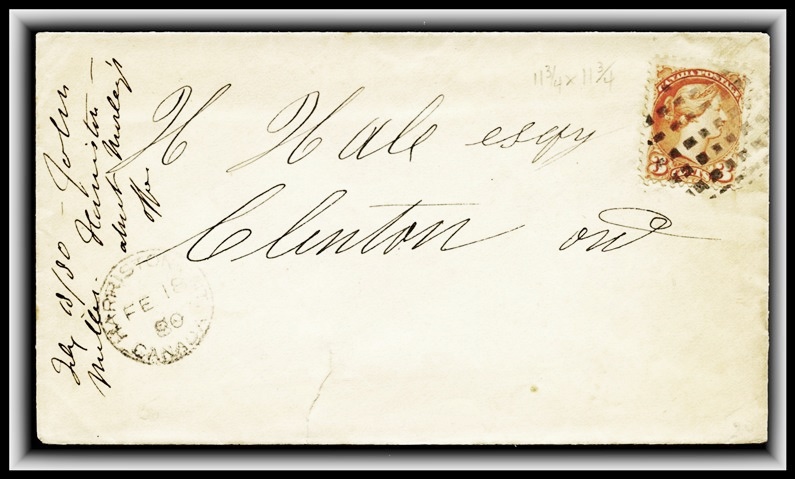 H Hale esqr
Clinton ont
11 3/4 x 11 3/4
CANADA POSTAGE
3 3
HARRISTON
FE 18
80
CANADA
Feby 18/80 — John
Miller. Harriston —
about